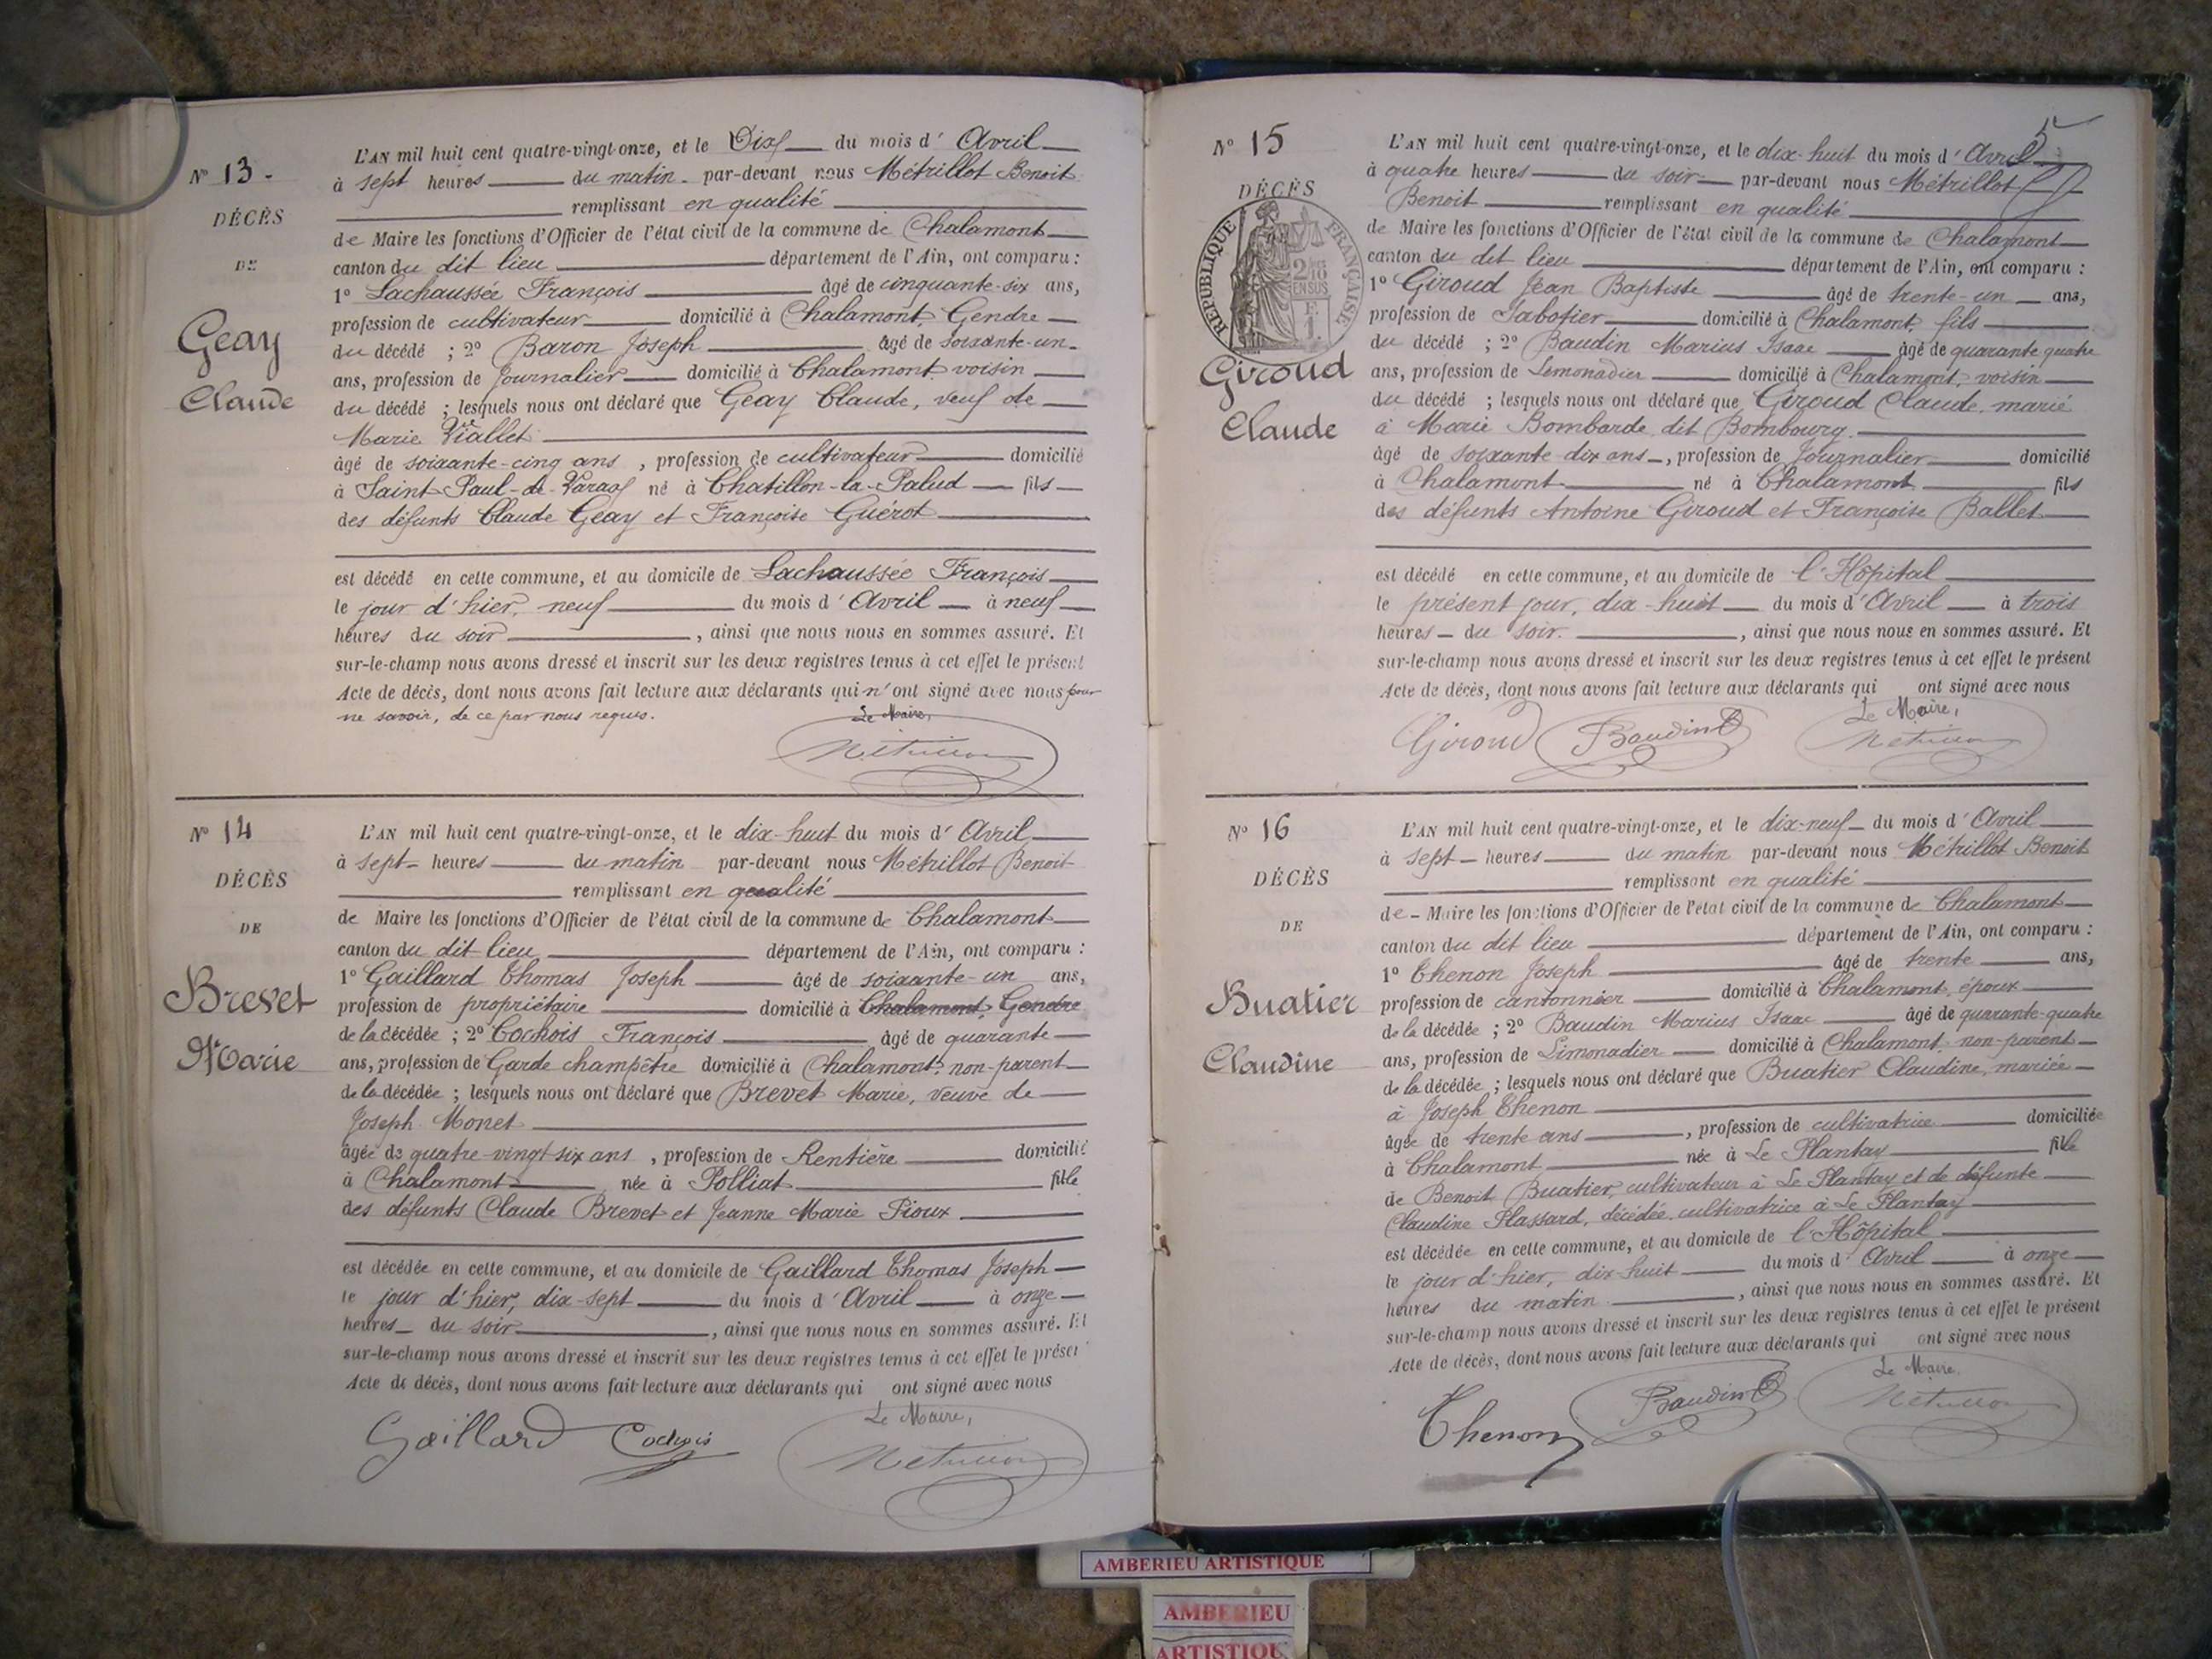 N° 13.
DÉCÈS
DE
Geay
Claude
L'AN mil huit cent quatre-vingt-onze, et le Dix du mois d'Avril
à sept heures du matin par-devant nous Métrillot Benoit
remplissant en qualité
de Maire les fonctions d'Officier de l'état civil de la commune de Chalamont
canton du dit lieu département de l'Ain, ont comparu :
1° Lachaussée François âgé de cinquante-six ans,
profession de cultivateur domicilié à Chalamont, Gendre
du décédé ; 2° Baron Joseph âgé de soixante-un
ans, profession de Journalier domicilié à Chalamont voisin
du décédé ; lesquels nous ont déclaré que Geay Claude, veuf de
Marie Viallet
âgé de soixante-cinq ans, profession de cultivateur domicilié
à Saint-Paul-de-Varax né à Chatillon-la-Palud fils
des défunts Claude Geay et Françoise Guérot
est décédé en cette commune, et au domicile de Lachaussée François
le jour d'hier, neuf du mois d'Avril à neuf
heures du soir, ainsi que nous nous en sommes assuré. Et
sur-le-champ nous avons dressé et inscrit sur les deux registres tenus à cet effet le présent
Acte de décès, dont nous avons fait lecture aux déclarants qui n'ont signé avec nous pour
ne savoir, de ce par nous requis.
Le Maire,
Métrillot
N° 14
DÉCÈS
DE
Brevet
Marie
L'AN mil huit cent quatre-vingt-onze, et le dix-huit du mois d'Avril
à sept heures du matin par-devant nous Métrillot Benoit
remplissant en qualité
de Maire les fonctions d'Officier de l'état civil de la commune de Chalamont
canton du dit lieu département de l'Ain, ont comparu :
1° Gaillard Thomas Joseph âgé de soixante-un ans,
profession de propriétaire domicilié à Chalamont, Gendre
de la décédée ; 2° Cochois François âgé de quarante
ans, profession de Garde champêtre domicilié à Chalamont, non-parent
de la décédée ; lesquels nous ont déclaré que Brevet Marie, veuve de
Joseph Monet
âgée de quatre-vingt-six ans, profession de Rentière domicilié
à Chalamont née à Polliat fille
des défunts Claude Brevet et Jeanne Marie Pioux
est décédée en cette commune, et au domicile de Gaillard Thomas Joseph
le jour d'hier, dix-sept du mois d'Avril à onze
heures du soir, ainsi que nous nous en sommes assuré. Et
sur-le-champ nous avons dressé et inscrit sur les deux registres tenus à cet effet le présent
Acte de décès, dont nous avons fait lecture aux déclarants qui ont signé avec nous
Le Maire,
Gaillard Cochois Métrillot
5
N° 15
DÉCÈS
RÉPUBLIQUE FRANÇAISE
2/10 EN SUS
Giroud
Claude
L'AN mil huit cent quatre-vingt-onze, et le dix-huit du mois d'Avril
à quatre heures du soir par-devant nous Métrillot
Benoit remplissant en qualité
de Maire les fonctions d'Officier de l'état civil de la commune de Chalamont
canton du dit lieu département de l'Ain, ont comparu :
1° Giroud Jean Baptiste âgé de trente-un ans,
profession de Sabotier domicilié à Chalamont, fils
du décédé ; 2° Baudin Marius Isaac âgé de quarante quatre
ans, profession de Limonadier domicilié à Chalamont, voisin
du décédé ; lesquels nous ont déclaré que Giroud Claude, marié
à Marie Bombarde dit Bombourg
âgé de soixante-dix ans, profession de Journalier domicilié
à Chalamont né à Chalamont fils
des défunts Antoine Giroud et Françoise Ballet
est décédé en cette commune, et au domicile de l'Hôpital
le présent jour, dix-huit du mois d'Avril à trois
heures du soir, ainsi que nous nous en sommes assuré. Et
sur-le-champ nous avons dressé et inscrit sur les deux registres tenus à cet effet le présent
Acte de décès, dont nous avons fait lecture aux déclarants qui ont signé avec nous
Le Maire,
Giroud Baudin Métrillot
N° 16
DÉCÈS
DE
Buatier
Claudine
L'AN mil huit cent quatre-vingt-onze, et le dix-neuf du mois d'Avril
à sept heures du matin par-devant nous Métrillot Benoit
remplissant en qualité
de Maire les fonctions d'Officier de l'état civil de la commune de Chalamont
canton du dit lieu département de l'Ain, ont comparu :
1° Thenon Joseph âgé de trente ans,
profession de cantonnier domicilié à Chalamont, époux
de la décédée ; 2° Baudin Marius Isaac âgé de quarante-quatre
ans, profession de Limonadier domicilié à Chalamont, non-parent
de la décédée ; lesquels nous ont déclaré que Buatier Claudine, mariée
à Joseph Thenon
âgée de trente ans, profession de cultivatrice domiciliée
à Chalamont née à Le Plantay fille
de Benoit Buatier, cultivateur à Le Plantay et de défunte
Claudine Plassard, décédée, cultivatrice à Le Plantay
est décédée en cette commune, et au domicile de l'Hôpital
le jour d'hier, dix-huit du mois d'Avril à onze
heures du matin, ainsi que nous nous en sommes assuré. Et
sur-le-champ nous avons dressé et inscrit sur les deux registres tenus à cet effet le présent
Acte de décès, dont nous avons fait lecture aux déclarants qui ont signé avec nous
Le Maire.
Thenon Baudin Métrillot
AMBERIEU ARTISTIQUE
AMBERIEU
ARTISTIQU